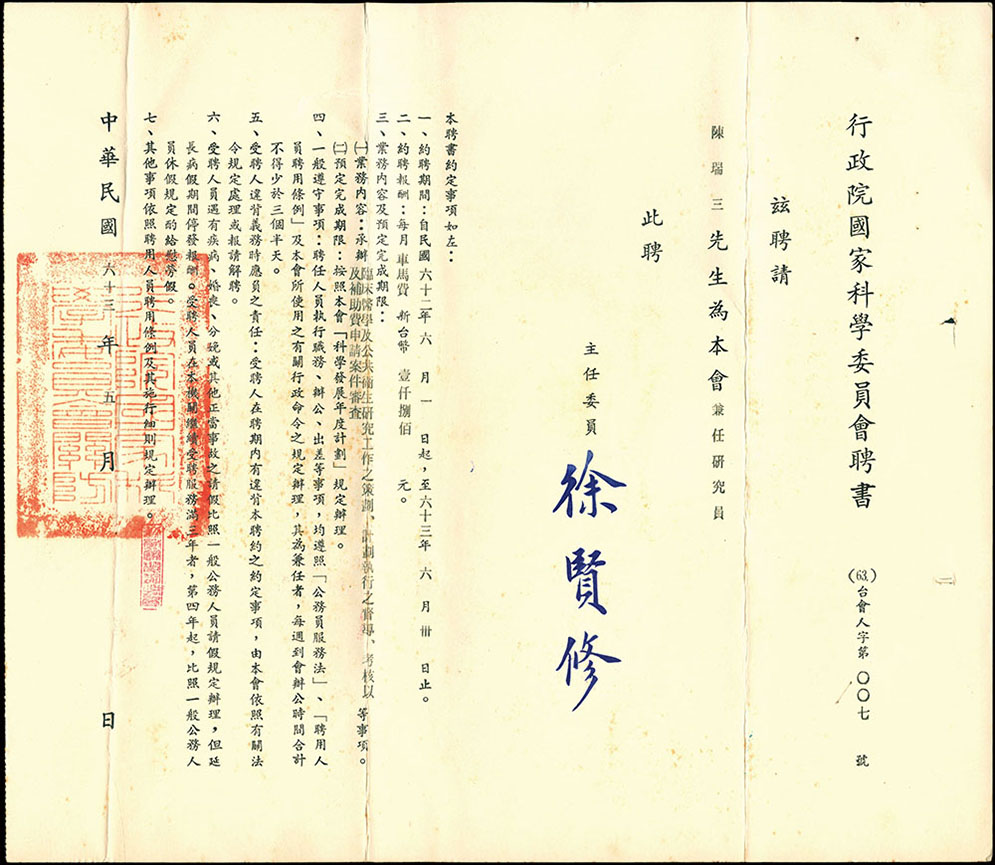 行政院國家科學委員會聘書
(63)台會人字第〇〇七號
茲聘請
陳瑞三先生為本會兼任研究員
此聘
主任委員 徐賢修
本聘書約定事項如左：
一、約聘期間：自民國六十二年六月一日起，至六十三年六月卅日止。
二、約聘報酬：每月車馬費新台幣壹仟捌佰元。
三、業務內容及預定完成期限：
㈠業務內容：承辦臨床醫學及公共衛生研究工作之策劃、計劃執行之督導、考核以及補助費申請案件審查等事項。
㈡預定完成期限：按照本會「科學發展年度計劃」規定辦理。
四、一般遵守事項：聘任人員執行職務、辦公、出差等事項，均遵照「公務員服務法」、「聘用人
員聘用條例」及本會所使用之有關行政命令之規定辦理，其為兼任者，每週到會辦公時間合計
不得少於三個半天。
五、受聘人違背義務時應負之責任：受聘人在聘期內有違背本聘約之約定事項，由本會依照有關法
令規定處理或報請解聘。
六、受聘人員遇有疾病、婚喪、分娩或其他正當事故之請假比照一般公務人員請假規定辦理，但延
長病假期間停發報酬。受聘人員在本機關繼續受聘服務滿三年者，第四年起，比照一般公務人
員休假規定酌給慰勞假。
七、其他事項依照聘用人員聘用條例及其施行細則規定辦理。
中華民國六十三年五月 日